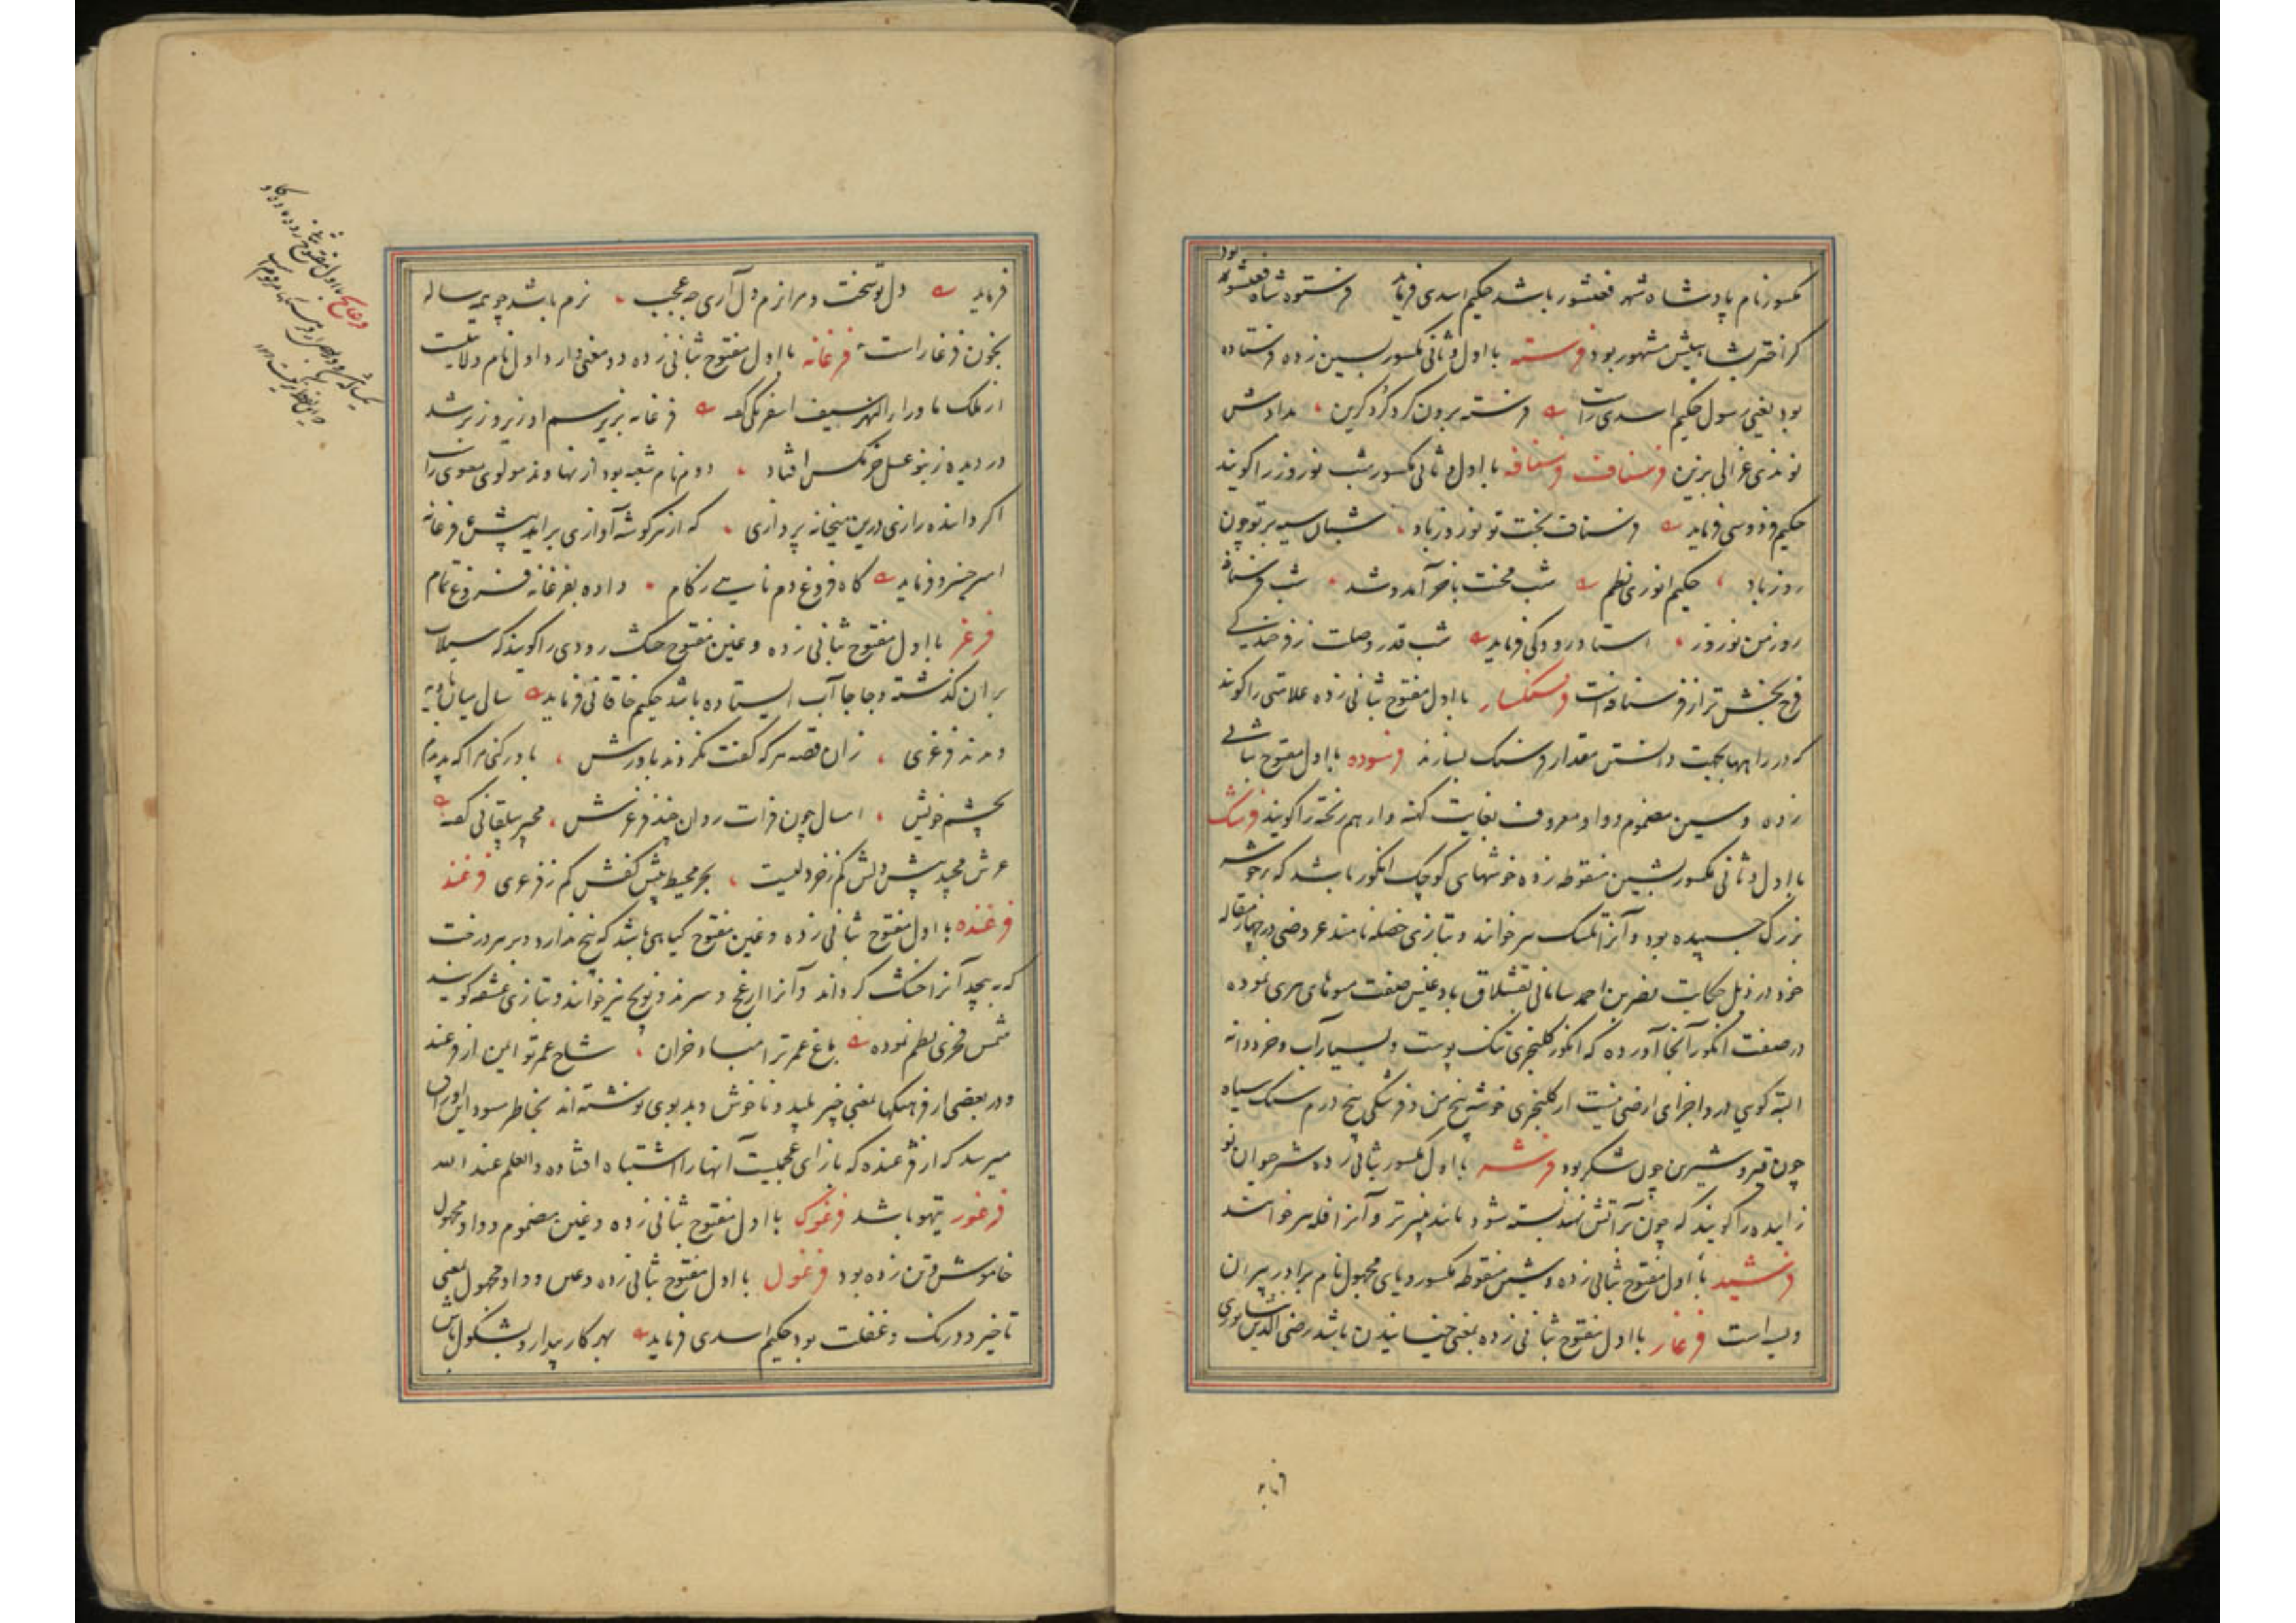 مکسور نام پادشاه شهر فغنشور باشد حکیم اسدی فرماید فرستوه شاه فغنشور بود
که اختر بشاهیش مشهور بود فرسته با اول و ثانی مکسور بسین زده فرستاده
بود یعنی رسول حکیم اسدی راست فرسته برون کرد گردی گزین مدادش
نوندی غزالی بزین فرسناف فرسنافه با اول و ثانی مکسور شب نوروز را گویند
حکیم فردوسی فرماید فرسناف بخت تو نوروز باد شبان سیه بر تو چون
روز باد حکیم انوری نظم شب محنت بآخر آمد و شد شب فرسنافه
روز من نوروز استاد رودکی فرماید شب قدر وصلت ز فرخندگی
فرح بخش تر از فرسنافه است فرسنگسار با اول مفتوح بثانی زده علامتی را گویند
که در راهها بجهت دانستن مقدار فرسنگ بسازند فرسوده با اول مفتوح بثانی
زده و سین مضموم و واو معروف بغایت کهنه و از هم ریخته را گویند فرشک
با اول و ثانی مکسور بشین منقوطه زده خوشهای کوچک انگور باشد که بر خوشه
بزرگ چسپیده بود و آنرا تلسک نیز خوانند و بتازی خصله نامند عروضی در چهار مقاله
خود در ذیل حکایت نصر بن احمد سامانی بقشلاق بادغیس صفت میوهای هری نموده
در صفت انگور آنجا آورده که انگور کلنجری تنک پوست و بسیار آب و خرد دانه
البته گویی درو اجزای ارضی نیست از کلنجری خوشه پنج من و فرشکی پنج درم سنگ سیاه
چون قیر و شیرین چون شکر بود فرشه با اول مکسور بثانی زده شیر حیوان نو
زاییده را گویند که چون بر آتش نهند بسته شود مانند پنیر تر و آنرا فله نیز خوانند
فرشید با اول مفتوح بثانی زده و شین منقوطه مکسور و یای مجهول نام برادر پیران
ویسه است فرغار با اول مفتوح بثانی زده بمعنی خیسانیدن باشد رضی الدین نشابوری
فرماید دل تو سخت و مرا نرم دل آری چه عجب نرم باشد چو همه ساله
بخون فرغار است فرغانه با اول مفتوح بثانی زده دو معنی دارد اول نام ولایتیست
از ملک ماوراء النهر سیف اسفرنگی گفته فرغانه بزیر سم او زیر و زبر شد
در دیده زنبور عسل خرمگس افتاد دوم نام شعبه بود از نهاوند مولوی معنوی راست
اگر داننده رازی درین میخانه پردازی که از هر گوشه آوازی برآید پیش فرغانه
امیر خسرو فرماید گاه فروغ دم نایی ز کام داده بفرغانه فروغ تمام
فرغر با اول مفتوح بثانی زده و غین مفتوح خشک رودی را گویند که سیلاب
بر آن گذشته و جا جا آب ایستاده باشد حکیم خاقانی فرماید سال میان بادیه
دیدند فرغری زان قصه هر که گفت نکردند باورش باور کنی مرا که بدیدم
بچشم خویش امسال چون فرات روان چند فرغرش مجیر بیلقانی گفته
عرش مجید پیش دلش کم ز خردلیست بحر محیط پیش کفش کم ز فرغری فرغند
فرغنده با اول مفتوح بثانی زده و غین مفتوح گیاهی باشد که بیخ ندارد و بر هر درخت
که بپیچد آنرا خشک گرداند و آنرا ارغج و سرند و نویج نیز خوانند و بتازی عشقه گویند
شمس فخری نظم نموده باغ عمر ترا مباد خزان شاخ عمر تو ایمن از فرغند
و در بعضی از فرهنگها بمعنی چیز پلید و ناخوش و بدبوی نوشته‌اند بخاطر مسود این اوراق
میرسد که از فژغنده که با زای عجمیست آنها را اشتباه افتاده والعلم عند الله
فرغور تیهو باشد فرغوک با اول مفتوح بثانی زده و غین مضموم و واو مجهول
خاموش و تن زده بود فرغول با اول مفتوح بثانی زده و غین و واو مجهول بمعنی
تاخیر و درنگ و غفلت بود حکیم اسدی فرماید بهر کار بیدار و بشکول باش